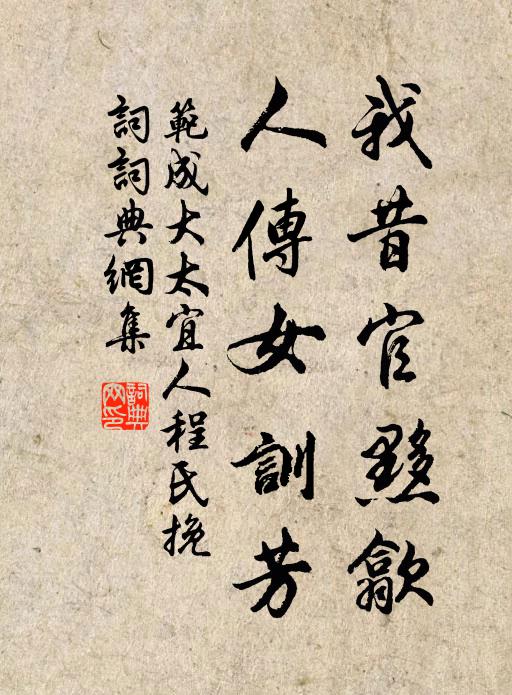 我昔官黟歙
人傳女訓芳
範成大太宜人程氏挽
詞詞典網集
詞典
网印